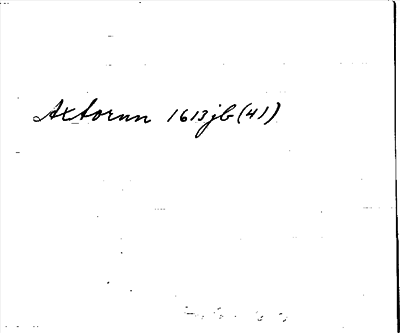 Axtorun 1613 jb (41)